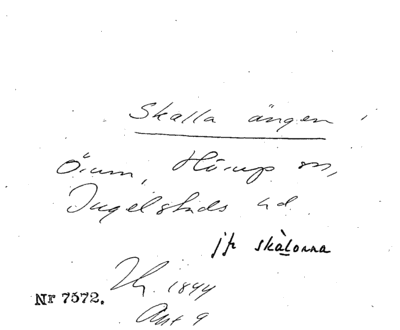 Skalla ängen
Örum, Hörup sn,
Ingelstads hd
jfr skàlonna
Nr 7572.
1844
Akt 9